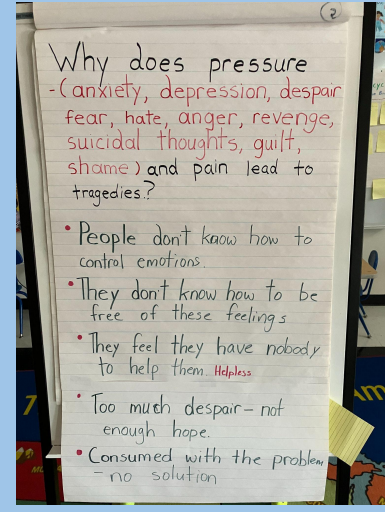 2
Why does pressure
-(anxiety, depression, despair
fear, hate, anger, revenge,
suicidal thoughts, guilt,
shame) and pain lead to
tragedies?
• People don't know how to
control emotions.
• They don't know how to be
free of these feelings
• They feel they have nobody
to help them. Helpless
• Too much despair - not
enough hope.
• Consumed with the problem
- no solution
7